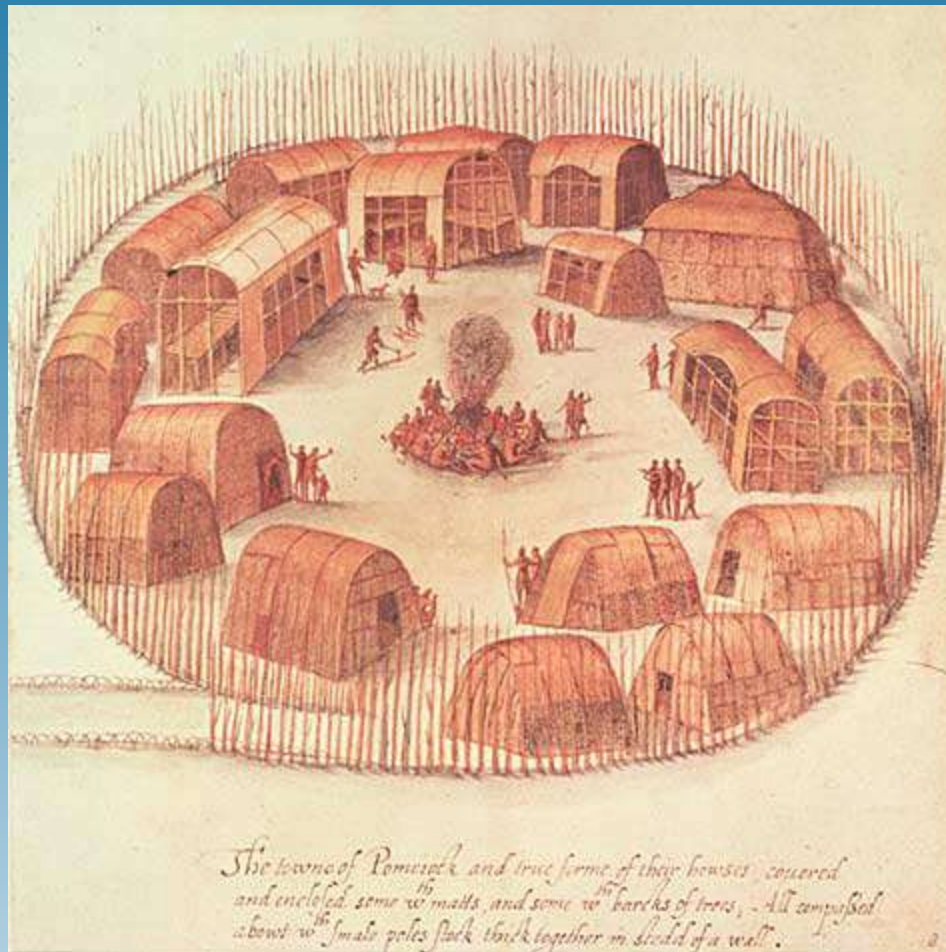 The towne of Pomeiock and true forme of their howses, couered
and enclosed some wth matts, and some wth barcks of trees, All compassed
abowt wth smale poles stock thick together in stedd of a wall.